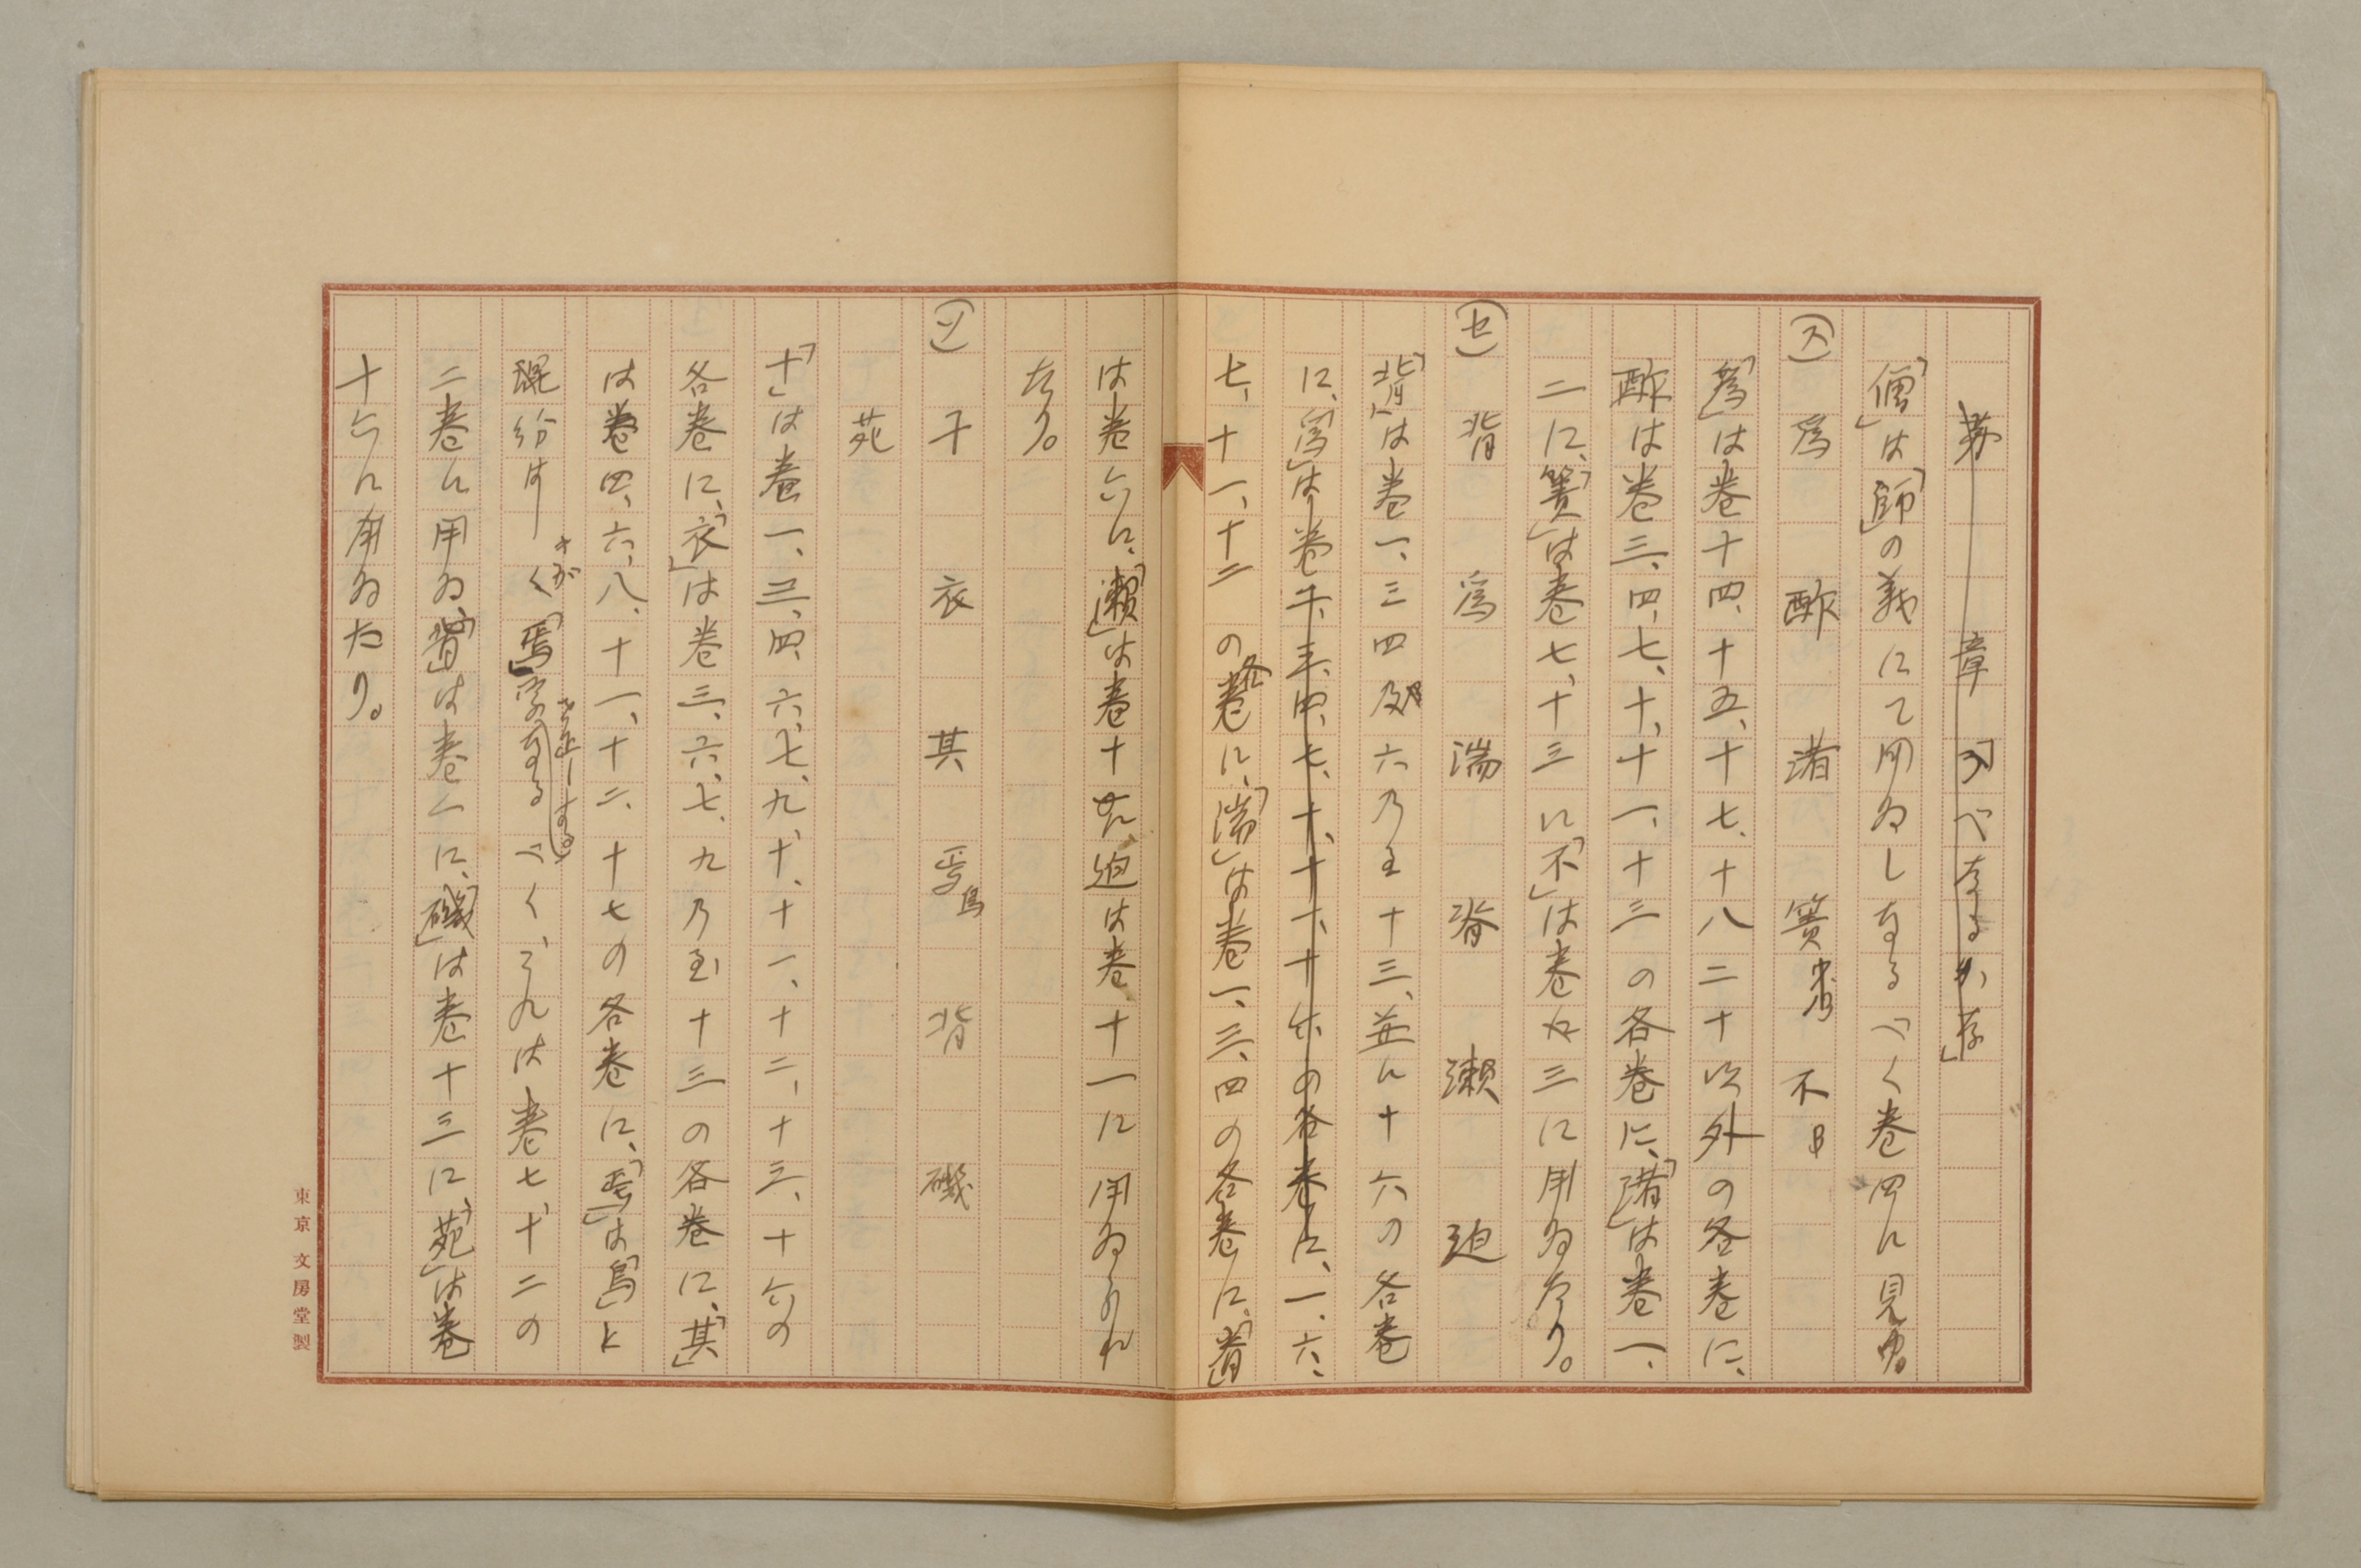 「僧」は「師」の義にて用ゐしなるべく巻四に見ゆ。
(ス) 為 酢 渚 簀 不
「為」は巻十四、十五、十七、十八二十以外の各巻に、
酢は巻三、四、七、十、十一、十三の各巻に、「渚」は巻一、
二に、「簀」は巻七、十三に「不」は巻 三に用ゐたり。
(セ) 背 為 湍 脊 瀬 迫
「背」は巻一、三四及六乃至十三、並に十六の各巻
に、 は巻 三、四、七、十、十一、十 の各巻に、一、六、
七、十一、十二の各巻に、「湍」は巻一、三、四の各巻に、「脊」
は巻六に、「瀬」は巻十 迫は巻十一に用ゐられ
たり。
(ソ) 十 衣 其 焉 背 磯
苑
「十」は巻一、三、四、六、七、九、十、十一、十二、十三、十六の
各巻に、「衣」は巻三、六、七、九乃至十三の各巻に、「其」
は巻四、六、八、十一、十二、十七の各巻に、「焉」は「烏」と
混紛 「焉」字なるべく、これは巻七、十二の
二巻に用ゐ、「背」は巻一に、「磯」は巻十三に、「苑」は巻
十六に用ゐたり。
東京 文房堂製